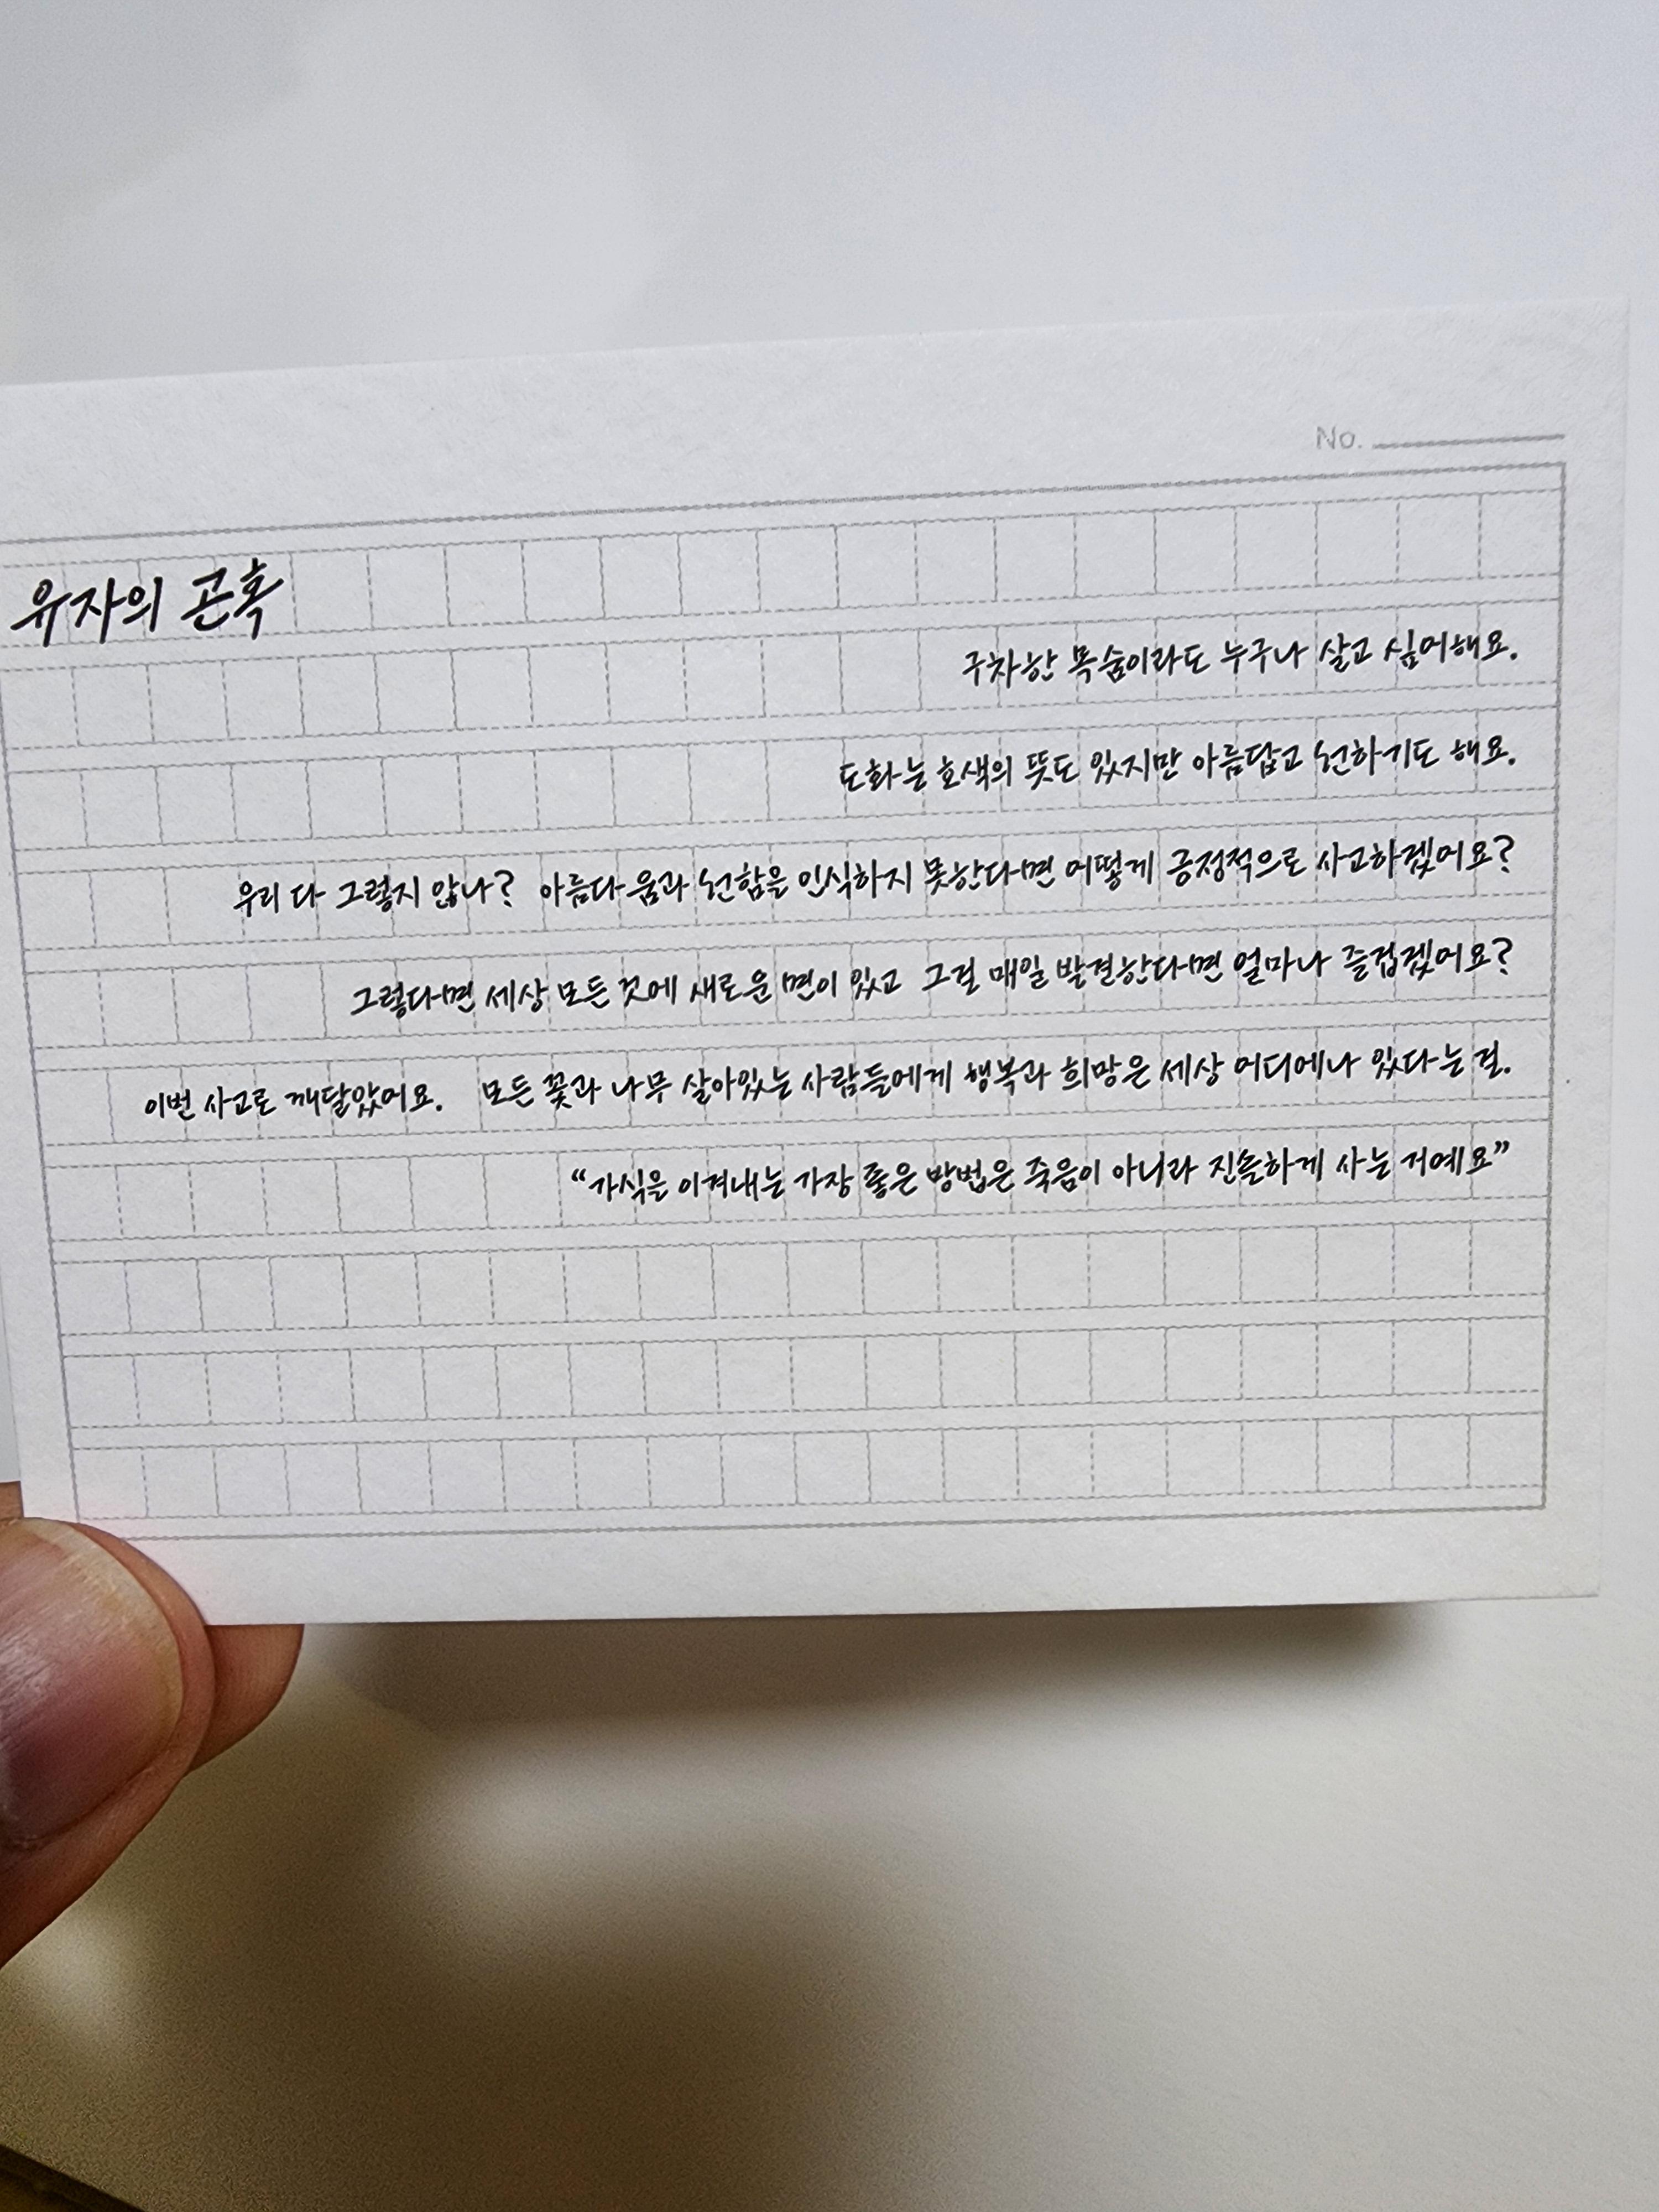 No.
유자의 곤혹
구차한 목숨이라도 누구나 살고 싶어해요.
도화는 호색의 뜻도 있지만 아름답고 선하기도 해요.
우리 다 그렇지 않나? 아름다움과 선함을 인식하지 못한다면 어떻게 긍정적으로 사고하겠어요?
그렇다면 세상 모든 것에 새로운 면이 있고 그걸 매일 발견한다면 얼마나 즐겁겠어요?
이번 사고로 깨달았어요. 모든 꽃과 나무 살아있는 사람들에게 행복과 희망은 세상 어디에나 있다는 걸.
“가식을 이겨내는 가장 좋은 방법은 죽음이 아니라 진솔하게 사는 거예요”